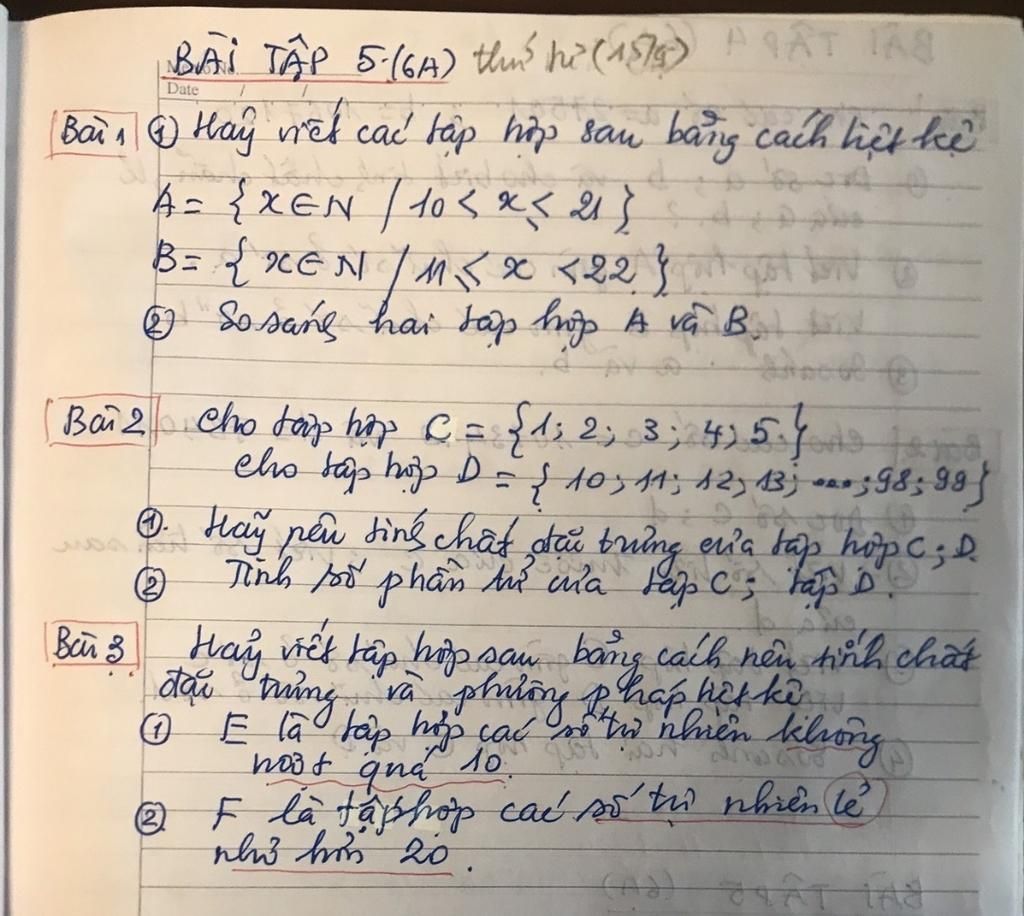 BÀI TẬP 5-(6A) thứ tư (15/9)
Date / /
Bài 1 ① Hãy viết các tập hợp sau bằng cách liệt kê
A = { x ∈ N / 10 < x ≤ 21 }
B = { x ∈ N / 11 ≤ x < 22 }
② So sánh hai tập hợp A và B.
Bài 2 Cho tập hợp C = {1; 2; 3; 4; 5}
Cho tập hợp D = { 10; 11; 12; 13; ...; 98; 99}
①. Hãy nêu tính chất đặc trưng của tập hợp C; D.
② Tính số phần tử của tập C; tập D.
Bài 3 Hãy viết tập hợp sau bằng cách nêu tính chất
đặc trưng và phương pháp liệt kê
① E là tập hợp các số tự nhiên không
vượt quá 10.
②. F là tập hợp các số tự nhiên lẻ
nhỏ hơn 20.